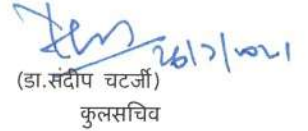 26/7/2021
(डा.संदीप चटर्जी)
कुलसचिव